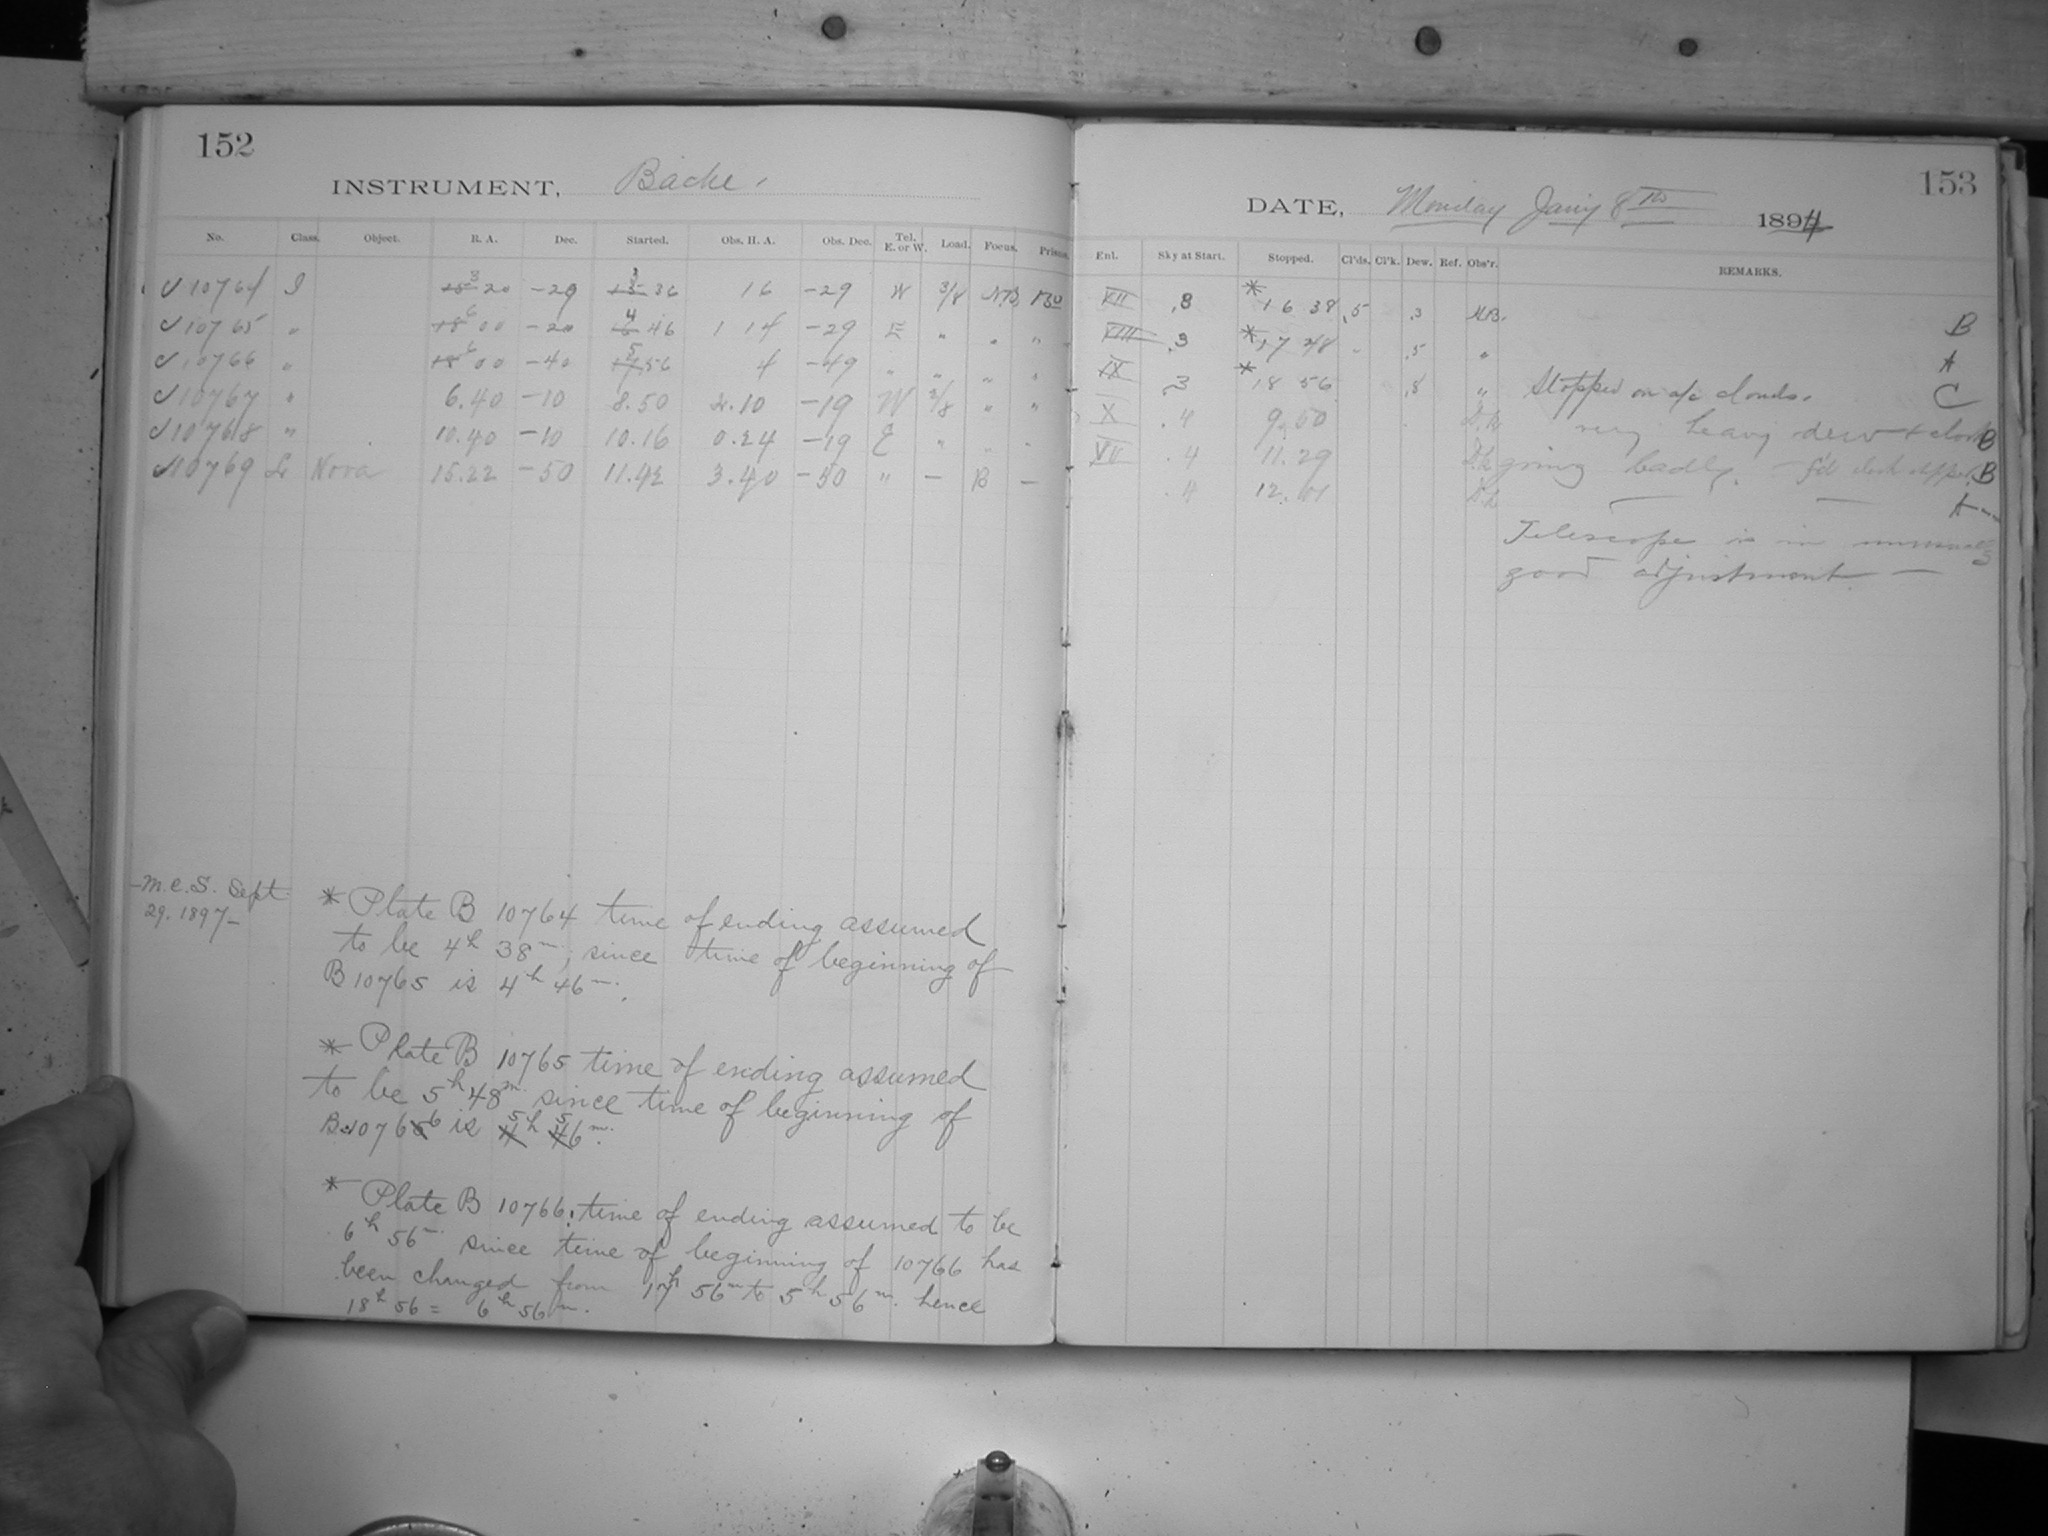 152
INSTRUMENT, Bache.
No. Class. Object. R. A. Dec. Started. Obs. H. A. Obs. Dec. Tel. E. or W. Load. Focus. Prisms.
✓ 10764 I 15 3 20 -29 15 3 36 16 -29 W 3/8 N.B.
✓ 10765 " 18 6 00 -20 16 4 46 1 14 -29 E " " "
✓ 10766 " 18 6 00 -40 17 5 56 4 -49 " " " "
✓ 10767 " 6.40 -10 8.50 2.10 -19 W 2/8 " "
✓ 10768 " 10.40 -10 10.16 0.24 -19 E " "
✓ 10769 L Nova 15.22 -50 11.42 3.40 -50 " - B -
m.e.S. Sept.
29. 1897-
* Plate B 10764 time of ending assumed
to be 4h 38m; since time of beginning of
B 10765 is 4h 46m.
* Plate B 10765 time of ending assumed
to be 5h 48m. since time of beginning of
B 10765 6 is 4 5h 4 56m.
* Plate B 10766: time of ending assumed to be
6h 56m. since time of beginning of 10766 has
been changed from 17h 56m to 5h 56m. hence
18h 56 = 6h 56m.
153
DATE, Monday Jany 8th 1894
Enl. Sky at Start. Stopped. Cl'ds. Cl'k. Dew. Ref. Obs'r. REMARKS.
VII .8 * 16 38 .5 .3 N.B. B
VIII .3 * 17 48 " .5 " A
IX .3 * 18 56 .8 " Stopped on a/c clouds. C
X .4 9.50 very heavy dew + clock B
VII .4 11.29 going badly. B
.4 12.01 A--
Telescope is in unusually
good adjustment -